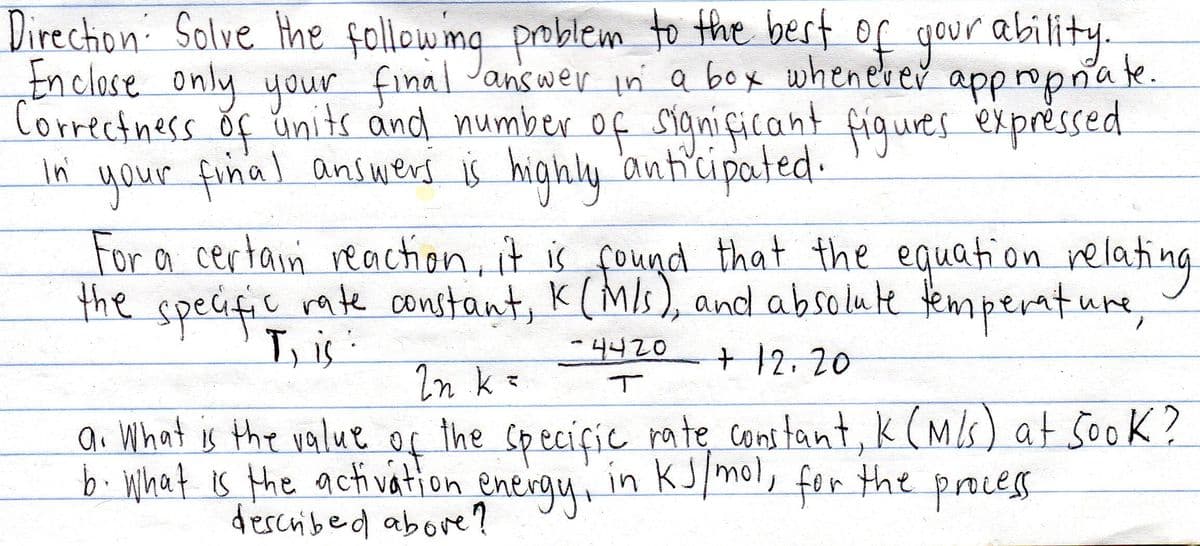 Direction: Solve the following problem to the best of your ability.
Enclose only your final answer in a box whenever appropriate.
Correctness of units and number of significant figures expressed
in your final answers is highly anticipated.
For a certain reaction, it is found that the equation relating
the specific rate constant, K (M/s), and absolute temperature,
T, is:
ln k = -4420/T + 12.20
a. What is the value of the specific rate constant, k (M/s) at 500K?
b. What is the activation energy, in KJ/mol, for the process
described above?